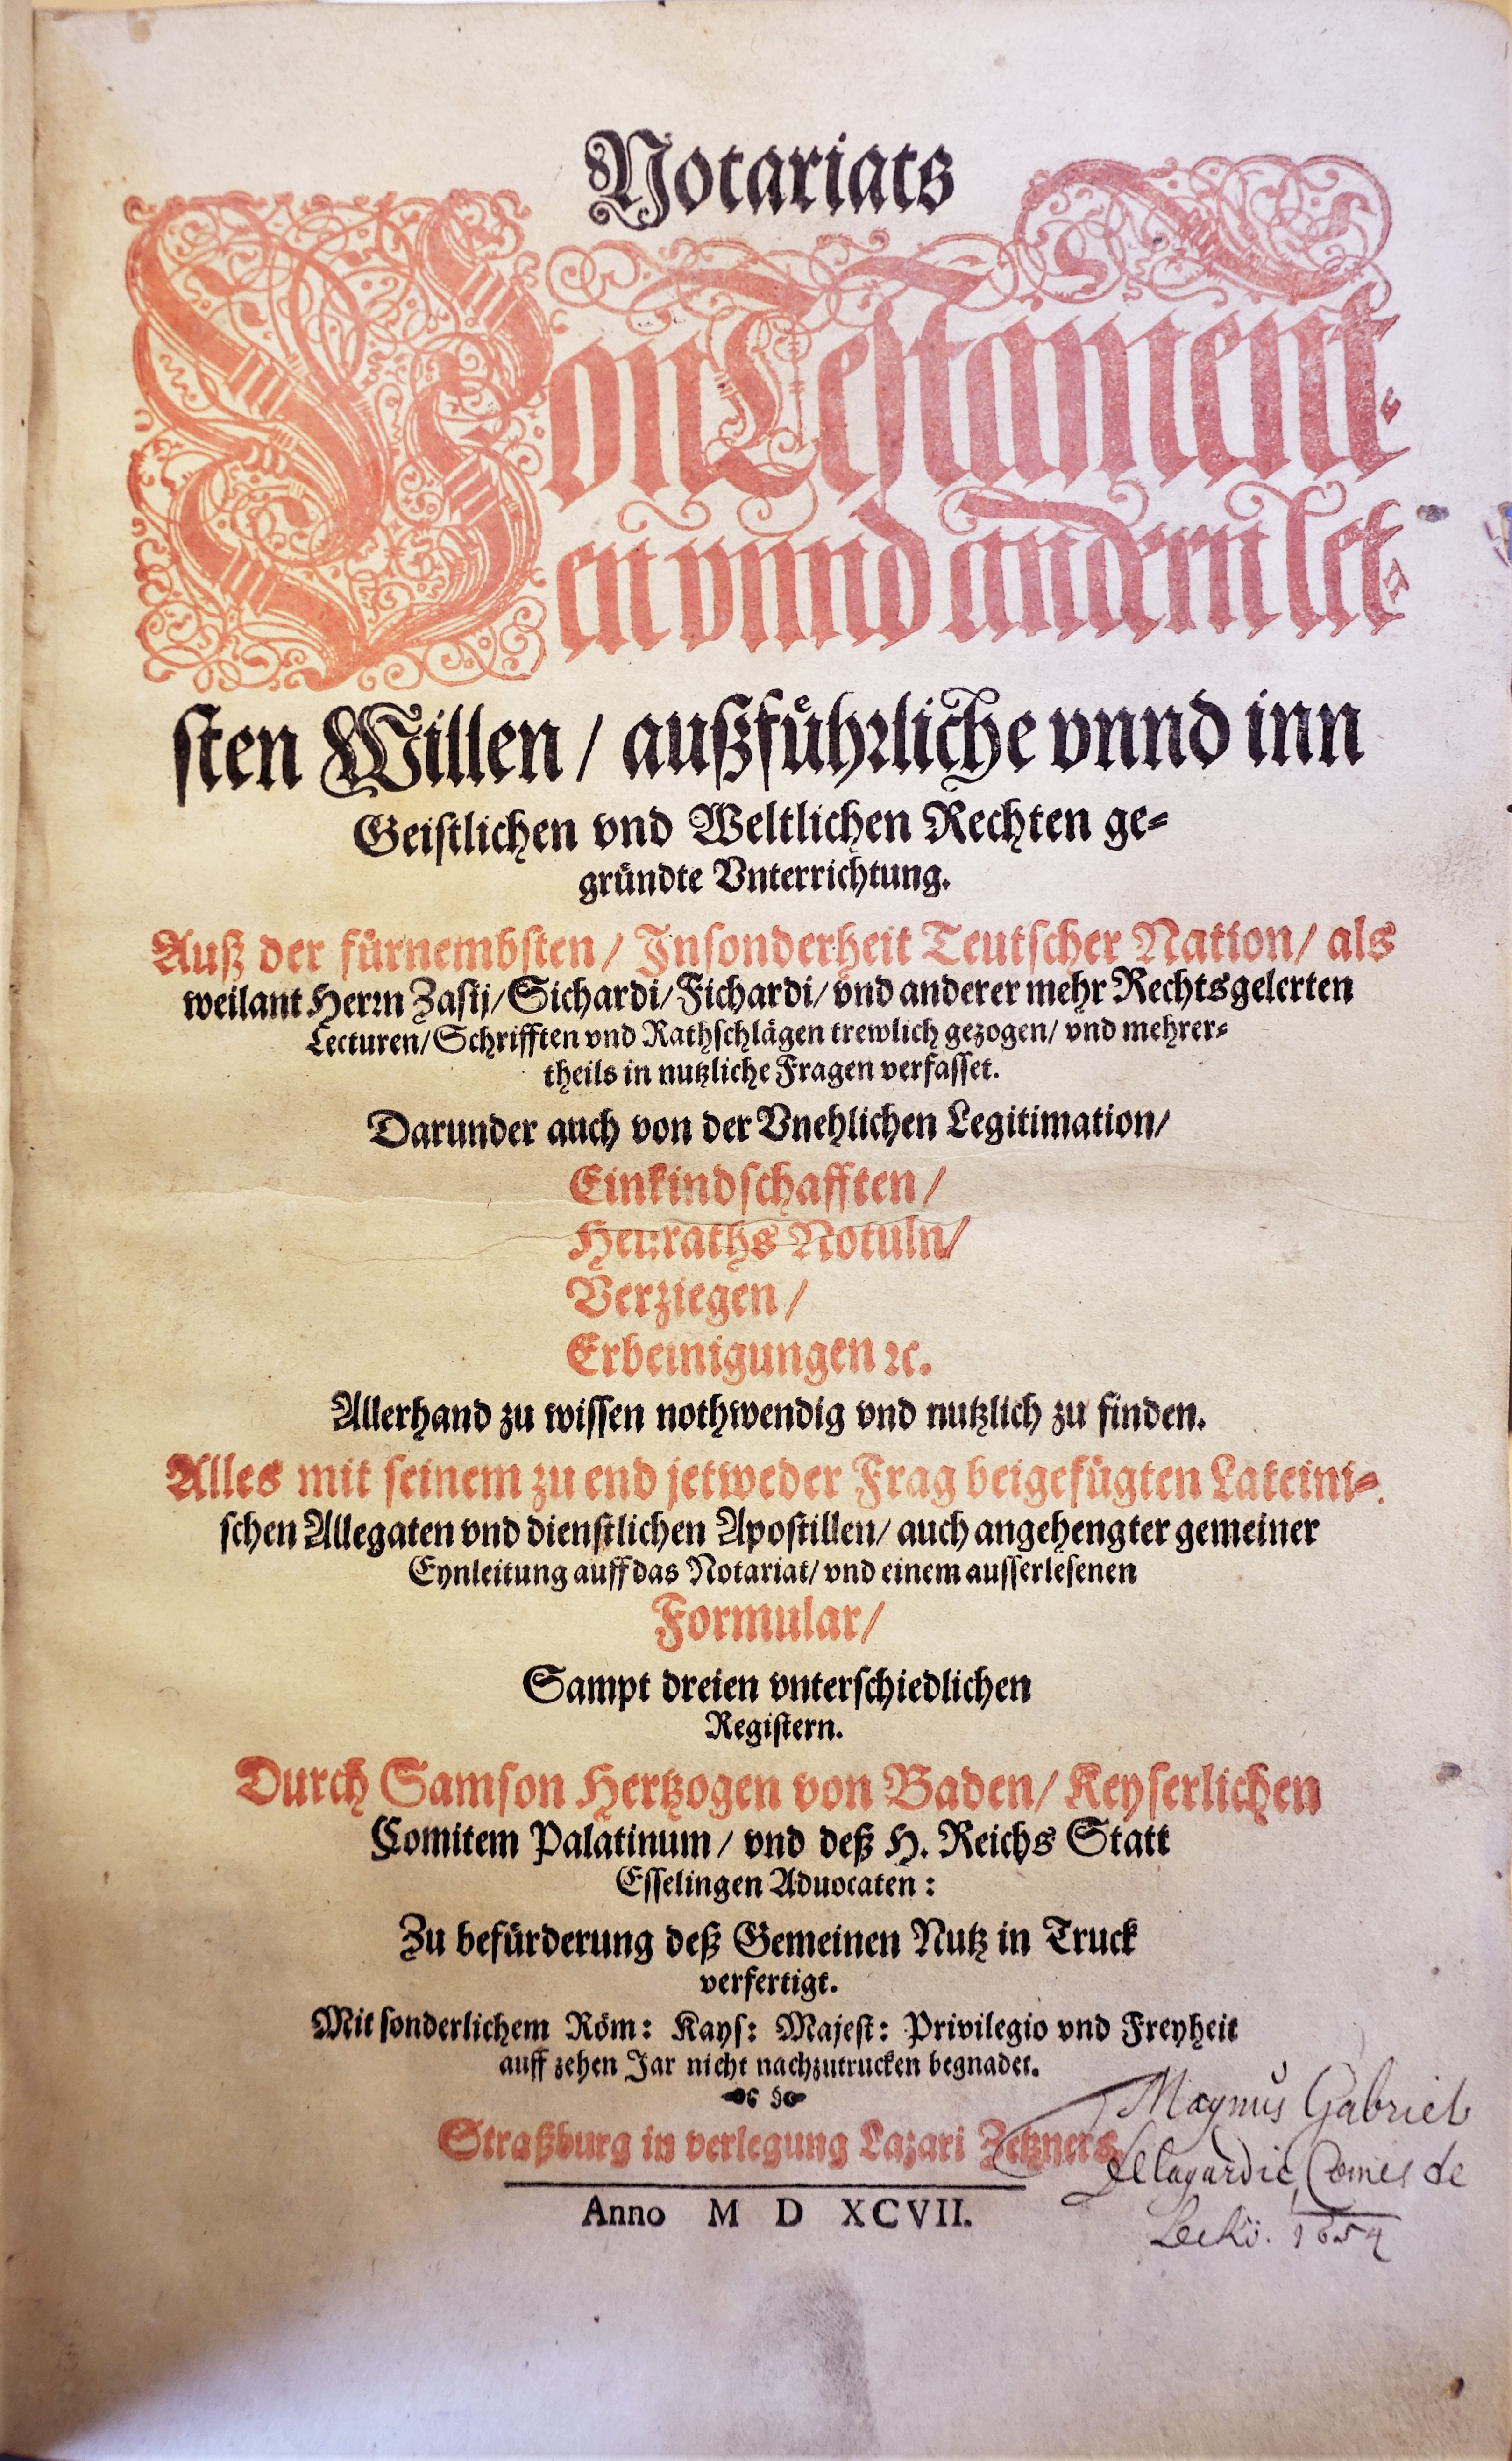 Notariats
Von Testament-
en vnnd andern let-
sten Willen / außführliche vnnd inn
Geistlichen vnd Weltlichen Rechten ge-
gründte Vnterrichtung.
Auß der fürnembsten / Insonderheit Teutscher Nation / als
weilant Herrn Zasij / Sichardi / Fichardi / vnd anderer mehr Rechtsgelerten
Lecturen / Schrifften vnd Rathschlägen trewlich gezogen / vnd mehrer-
theils in nutzliche Fragen verfasset.
Darunder auch von der Vnehlichen Legitimation /
Einkindschafften /
Heuraths Notuln /
Verziegen /
Erbeinigungen ꝛc.
Allerhand zu wissen nothwendig vnd nutzlich zu finden.
Alles mit seinem zu end jetweder Frag beigefügten Lateini-
schen Allegaten vnd dienstlichen Apostillen / auch angehengter gemeiner
Eynleitung auff das Notariat / vnd einem ausserlesenen
Formular /
Sampt dreien vnterschiedlichen
Registern.
Durch Samson Hertzogen von Baden / Keyserlichen
Comitem Palatinum / vnd deß H. Reichs Statt
Esselingen Aduocaten :
Zu befürderung deß Gemeinen Nutz in Truck
verfertigt.
Mit sonderlichem Röm: Kays: Majest: Privilegio vnd Freyheit
auff zehen Jar nicht nachzutrucken begnadet.
Straßburg in verlegung Lazari Zetzners
Anno M D XCVII.
Magnus Gabriel
Delagardie, Comes de
Leckö. 1654